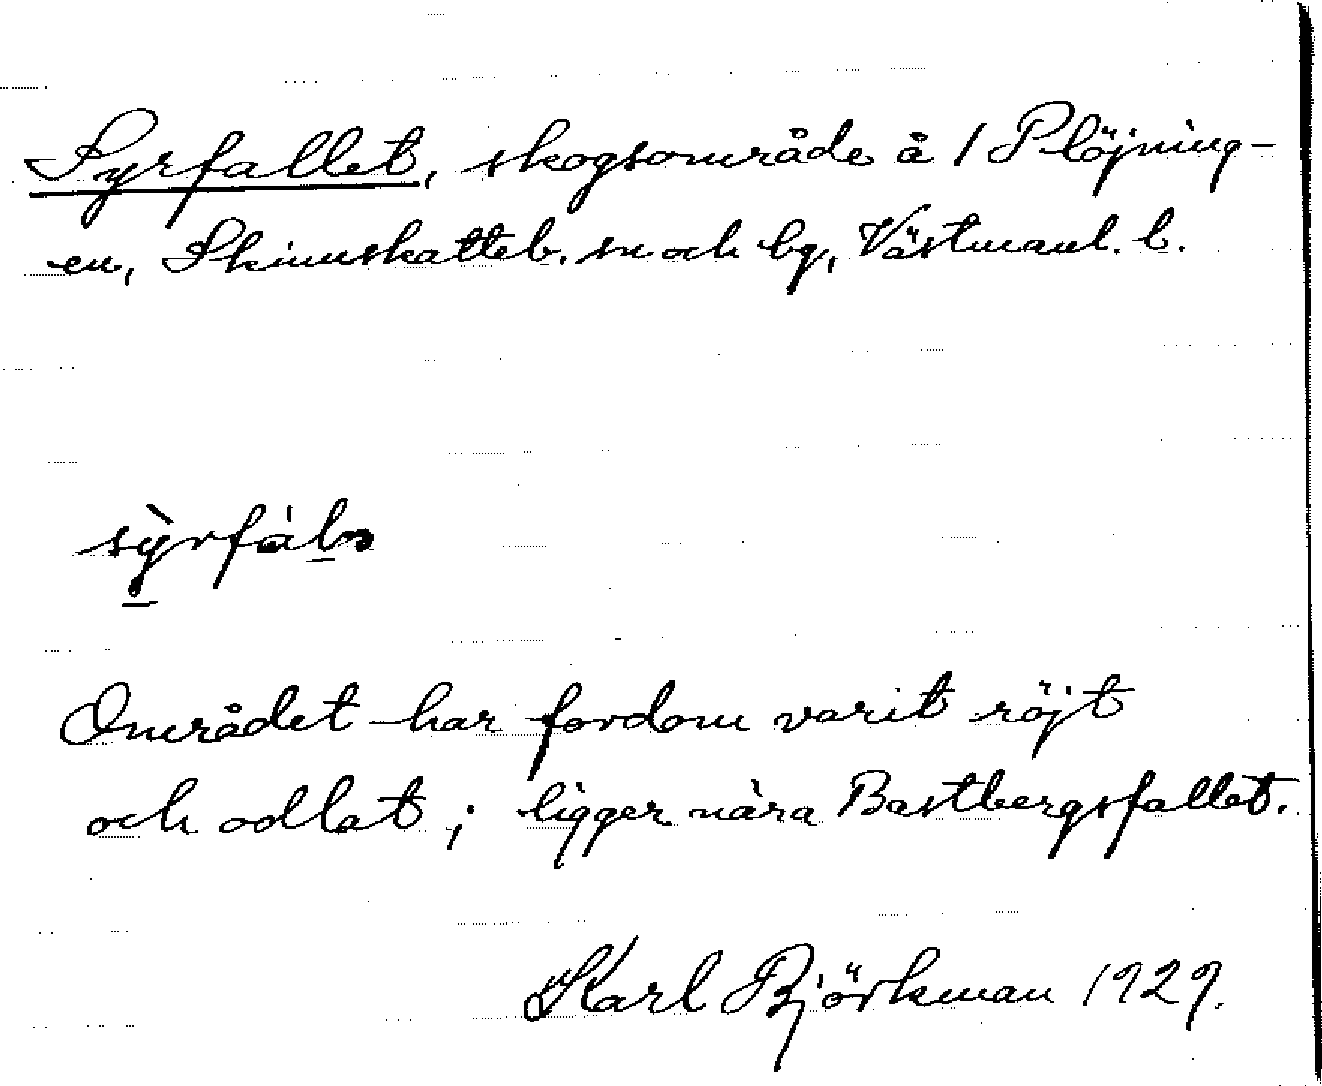 Syrfallet, skogsområde å 1 Plöjning-
en, Skinnskatteb. sn och bg, Västmanl. l.
Området har fordom varit röjt
och odlat; ligger nära Bastbergsfallet.
Karl Björkman 1929.